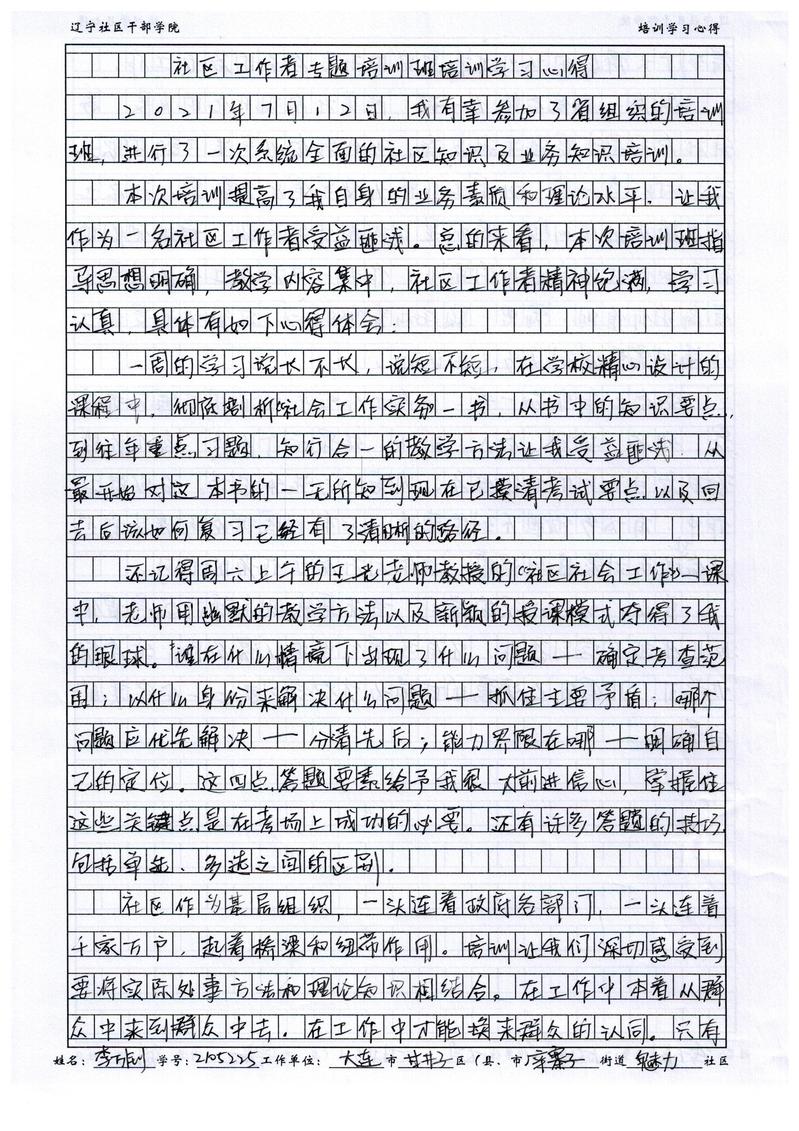 辽宁社区干部学院 培训学习心得
社区工作者专题培训班培训学习心得
2021年7月12日,我有幸参加了省组织的培训
班,进行了一次系统全面的社区知识及业务知识培训。
本次培训提高了我自身的业务素质和理论水平.让我
作为一名社区工作者受益匪浅。总的来看,本次培训班指
导思想明确,教学内容集中,社区工作者精神饱满,学习
认真,具体有如下心得体会:
一周的学习说长不长,说短不短,在学校精心设计的
课程中,彻底剖析《社会工作实务》一书,从书中的知识要点,
到往年重点习题,知行合一的教学方法让我受益匪浅.从
最开始对这本书的一无所知到现在已摸清考试要点以及回
去后该如何复习已经有了清晰的路径。
还记得周六上午的王老师教授的《社区社会工作》一课
中,老师用幽默的教学方法以及新颖的授课模式夺得了我
的眼球。"谁在什么情境下出现了什么问题——确定考查范
围;以什么身份来解决什么问题——抓住主要矛盾;哪个
问题应优先解决——分清先后;能力界限在哪——明确自
己的定位。这四点答题要素给予我很大前进信心,掌握住
这些关键点是在考场上成功的必要。还有许多答题的技巧
包括单选、多选之间的区别.
社区作为基层组织,一头连着政府各部门,一头连着
千家万户,起着桥梁和纽带作用。培训让我们深切感受到
要将实际处事方法和理论知识相结合。在工作中本着从群
众中来到群众中去.在工作中才能换来群众的认同.只有
姓名:李 学号:2105225工作单位:大连市甘井子区(县、市)辛寨子街道魅力社区